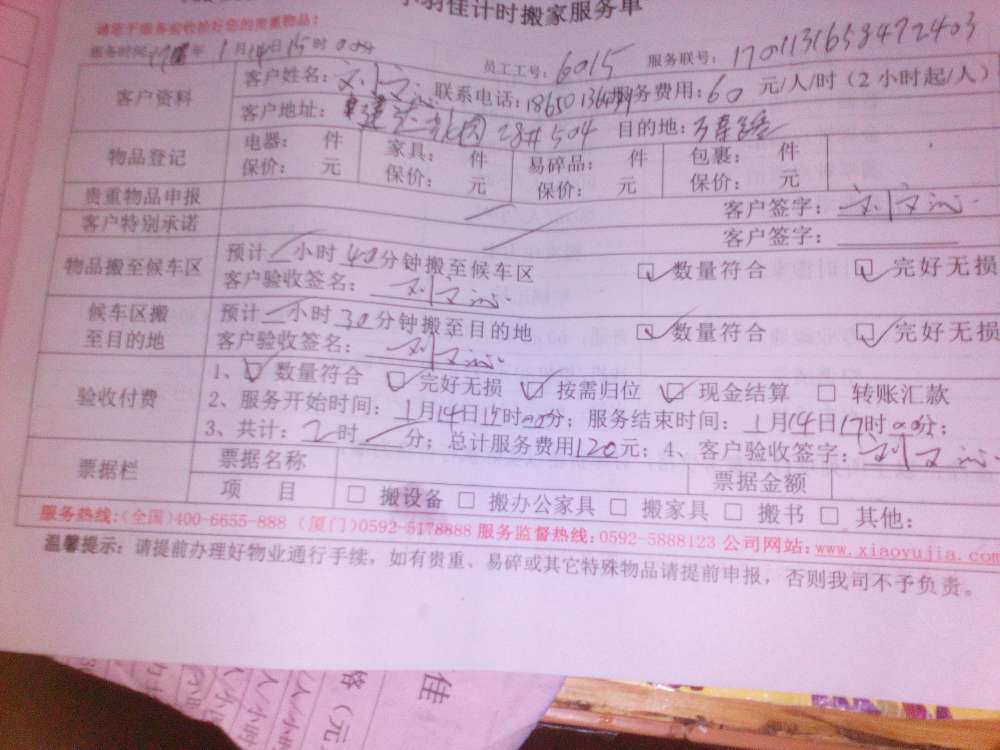 小羽佳计时搬家服务单
请您于服务前收拾好您的贵重物品！
服务时间: 年 1月14日15时00分 员工工号: 6015 服务联号: 1701131658472403
客户资料 客户姓名: 联系电话: 服务费用: 60 元/人/时（2小时起/人）
客户地址: 28# 504 目的地:
物品登记 电器: 件 家具: 件 易碎品: 件 包裹: 件
保价: 元 保价: 元 保价: 元 保价: 元
贵重物品申报 客户签字:
客户特别承诺 客户签字:
物品搬至候车区 预计 小时 40 分钟搬至候车区 ☑ 数量符合 ☑ 完好无损
客户验收签名:
候车区搬至目的地 预计 小时 30 分钟搬至目的地 ☑ 数量符合 ☑ 完好无损
客户验收签名:
验收付费 1、☑ 数量符合 ☑ 完好无损 ☑ 按需归位 ☑ 现金结算 □ 转账汇款
2、服务开始时间: 1月14日15时00分; 服务结束时间: 1月14日17时00分;
3、共计: 2时 分; 总计服务费用120元; 4、客户验收签字:
票据栏 票据名称 票据金额
项 目 □ 搬设备 □ 搬办公家具 □ 搬家具 □ 搬书 □ 其他:
服务热线:(全国)400-6655-888 (厦门)0592-5178888 服务监督热线:0592-5888123 公司网站:www.xiaoyujia.com
温馨提示: 请提前办理好物业通行手续，如有贵重、易碎或其它特殊物品请提前申报，否则我司不予负责。
佳